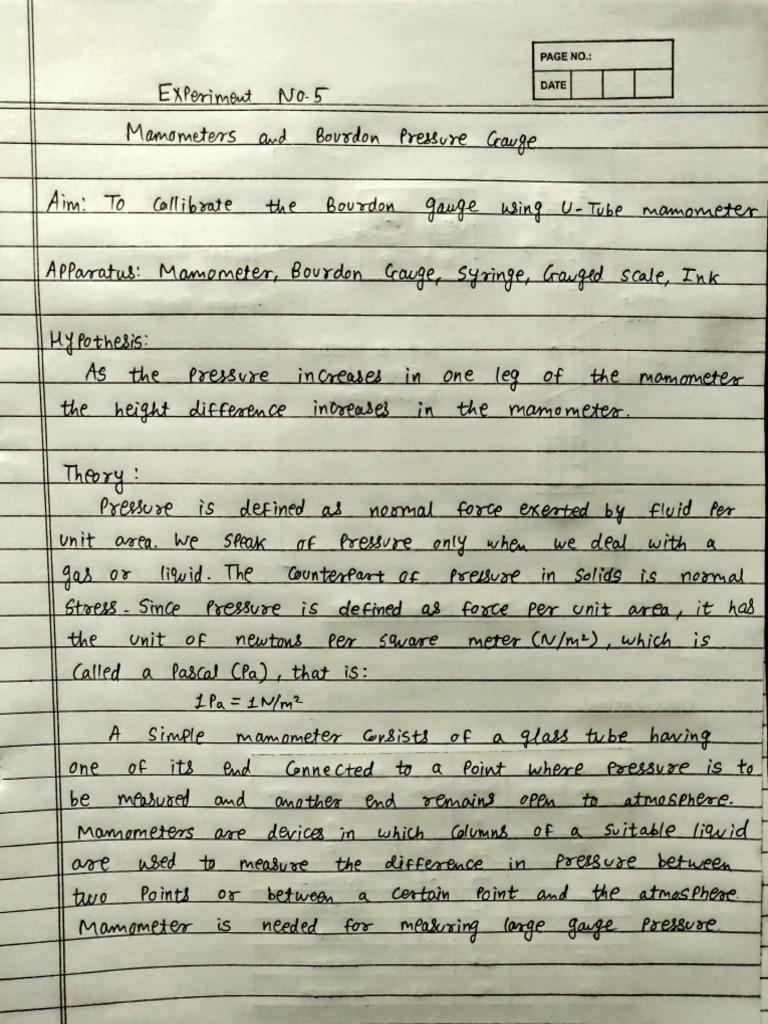 PAGE NO.:
DATE
Experiment No-5
Mamometers and Bourdon Pressure Gauge
Aim: To Callibrate the Bourdon gauge using U-Tube mamometer
Apparatus: Mamometer, Bourdon Gauge, Syringe, Gauged scale, Ink
Hypothesis:
As the Pressure increases in one leg of the mamometer
the height difference increases in the mamometer.
Theory:
Pressure is defined as normal force exerted by fluid Per
unit area. We speak of Pressure only when we deal with a
gas or liquid. The Counterpart of Pressure in Solids is normal
Stress. Since Pressure is defined as force per unit area, it has
the unit of newtons Per square meter (N/m²), which is
Called a Pascal (Pa), that is:
1Pa = 1N/m²
A Simple mamometer Corsists of a glass tube having
one of its end Connected to a Point where Pressure is to
be measured and another end remains open to atmosphere.
Mamometers are devices in which Columns of a Suitable liquid
are used to measure the difference in Pressure between
two Points or between a certain Point and the atmosphere.
Mamometer is needed for measuring large gauge Pressure.